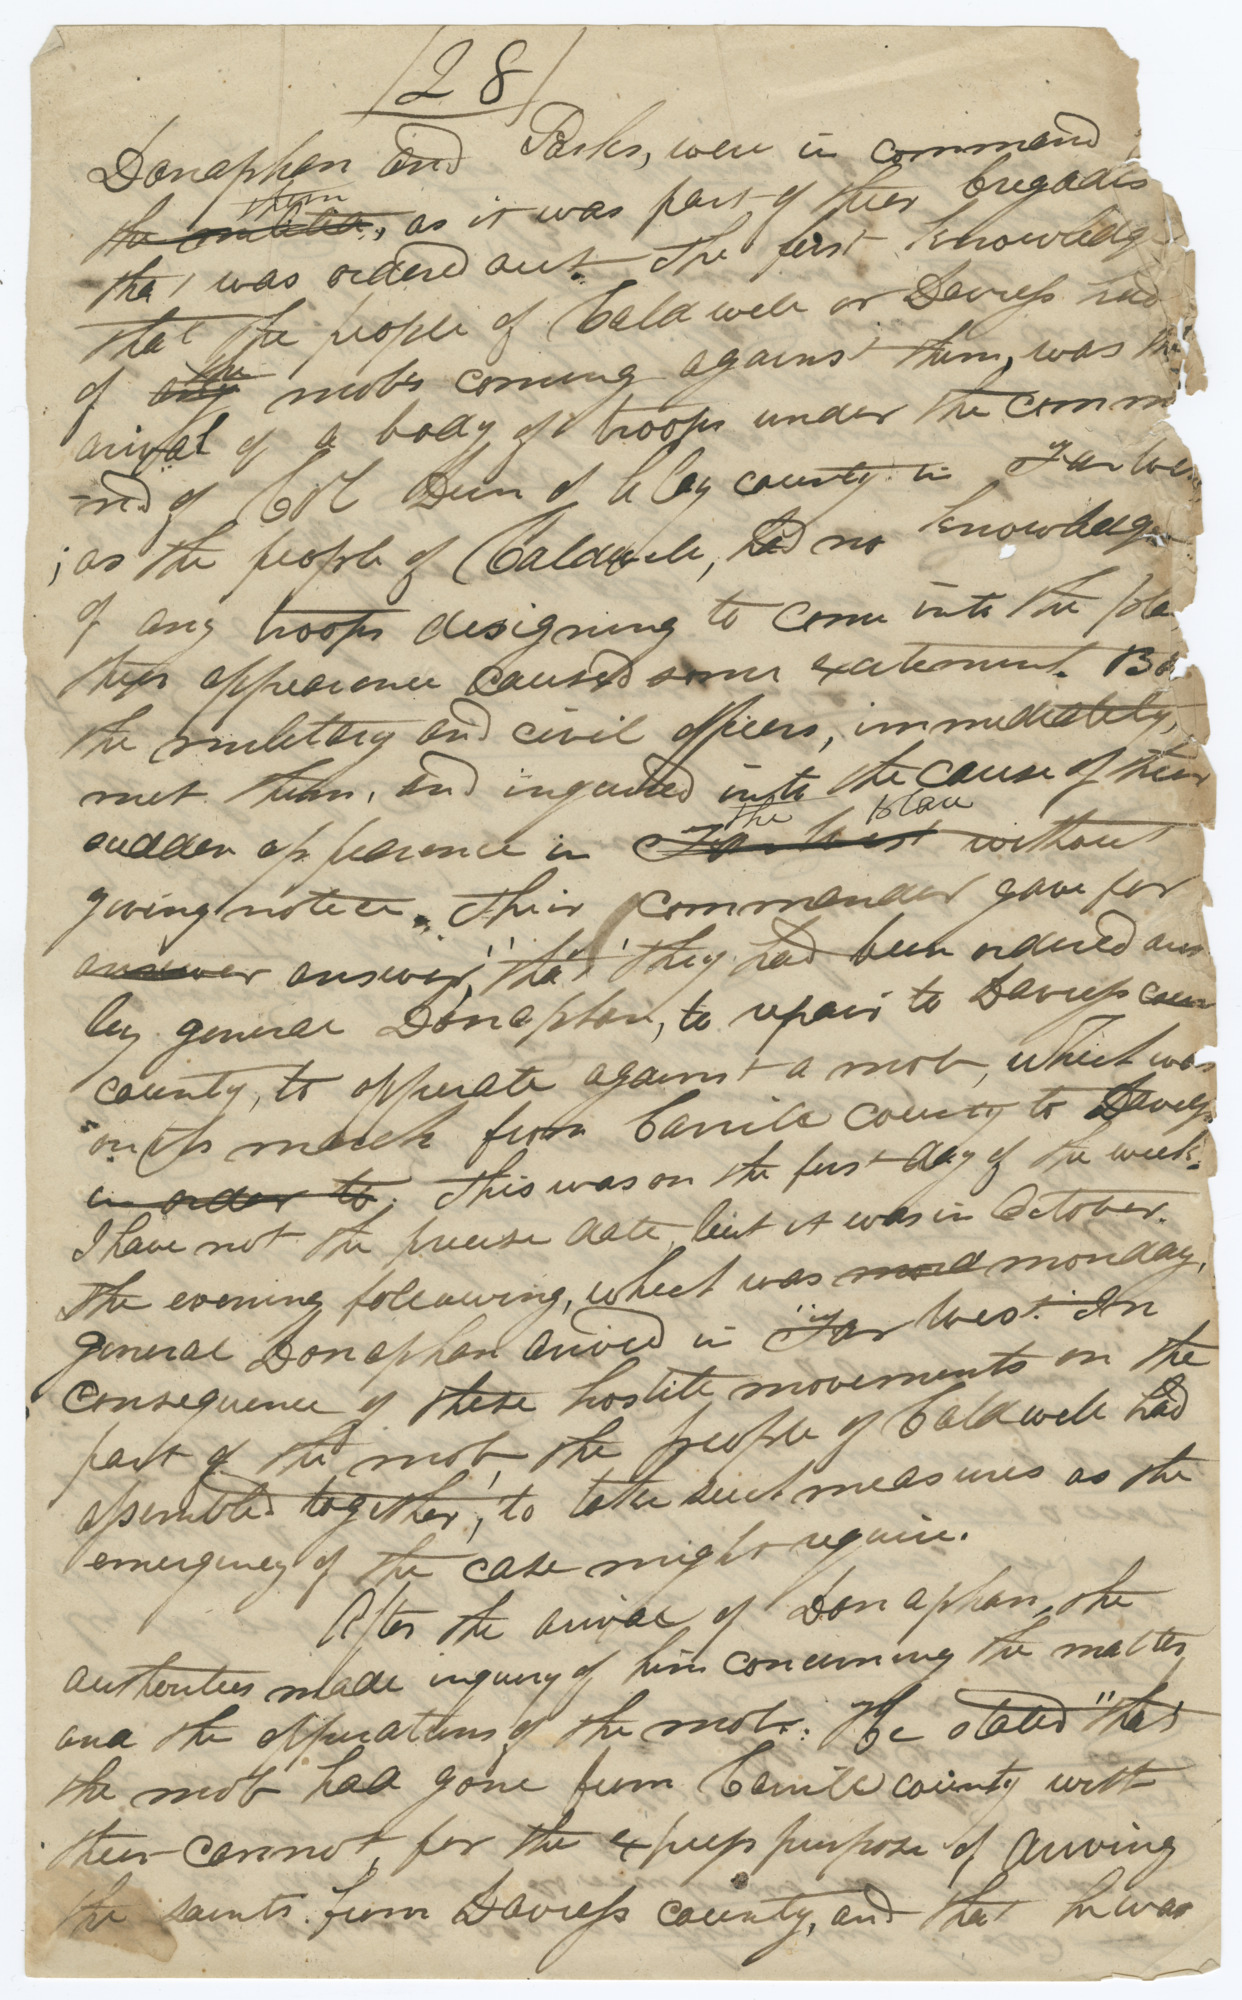 28
Donaphan and Parks, were in command
the militia, them as it was part of their bregades
that was ordered out. The first knowledg
that the people of Caldwell or Daviess had
of any the mobs coming against them, was the
arival of a body of troops under the comm
-nd of Col Dun of Clay county in Far West
; as the people of Caldwell, had no knowledge
of any troops designing to come into the pla
their appearance caused some exatement. But
the military and civil officers, immediately,
met them, and inquired into the cause of their
sudden appearence in Far West the place without
giving notice. Their commander gave for
answer answer, "that they had been ordered out
by general Donaphan, to repair to Daviess coun
county, to opperate against a mob, which was
on its march from Carrill county to Daviess
in order to. This was on the first day of the week.
I have not the precise date, but it was in October.
The evening following, which was mond monday,
general Donaphan arived in Far West. In
consequence of these hostile movements on the
part of the mob, the people of Caldwell had
assembled together, to take such measures as the
emergency of the case might require.
After the arival of Donaphan, the
authorities made inquiry of him concerning the matter,
and the opperations of the mob. He stated "that
the mob had gone from Carrill county with
their cannot, for the express purpose of driving
the saints from Daviess county, and that he was